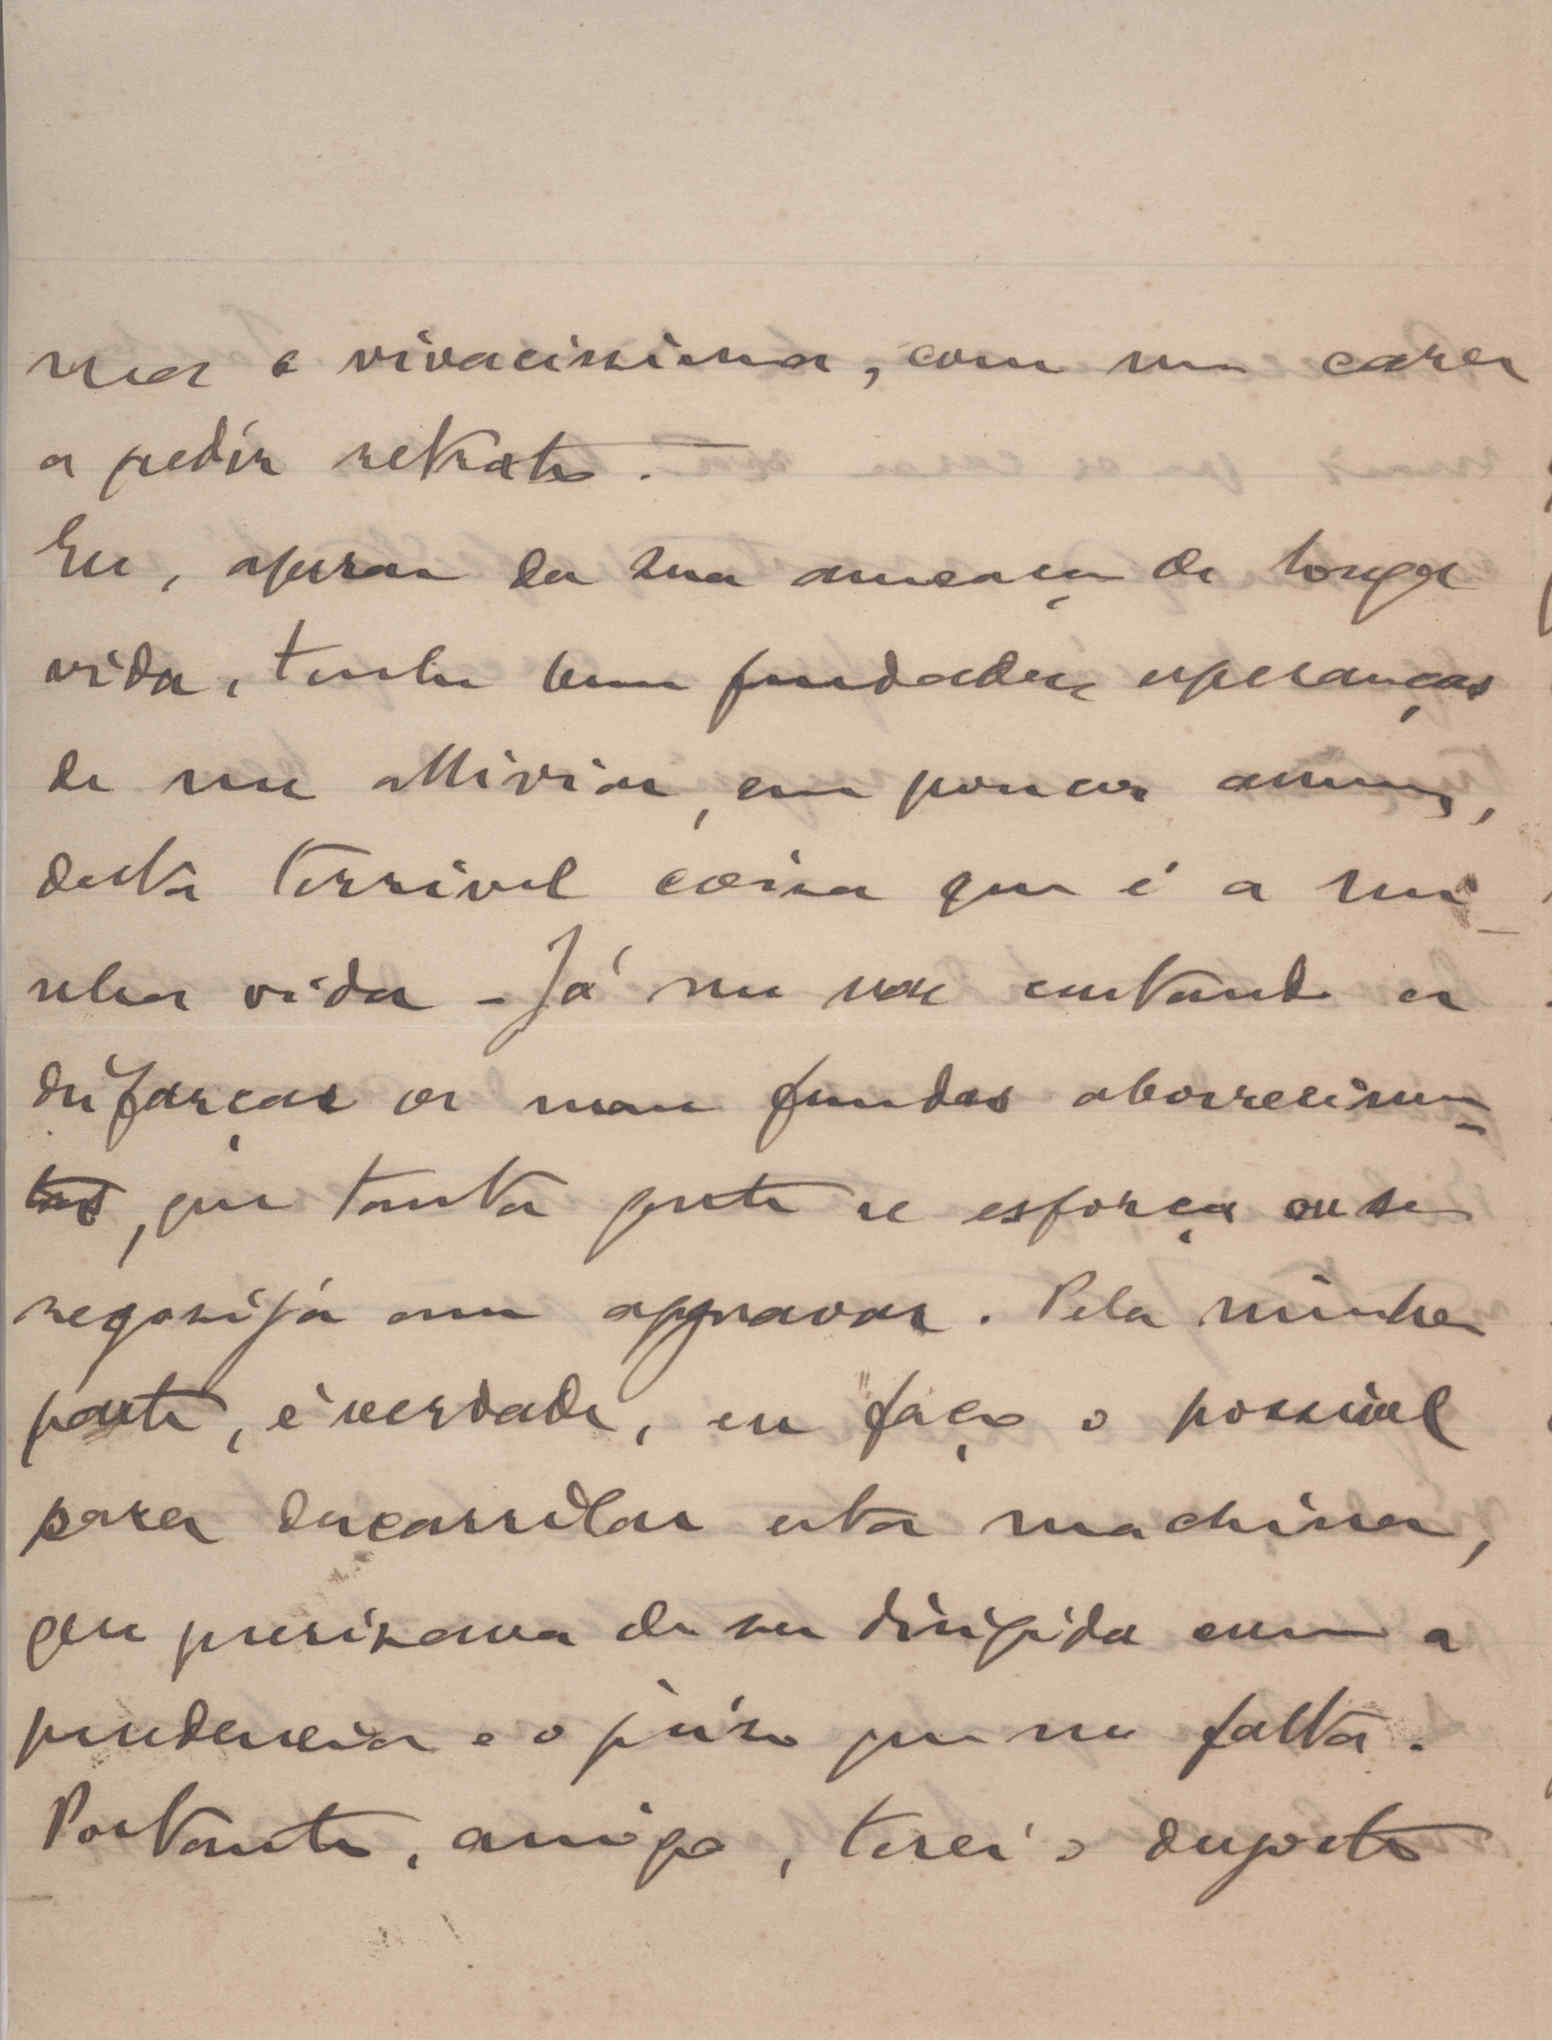 ma e vivacissima, com um cara
a pedir retrato.
Eu, apezar da sua ameaça de longa
vida, tenho bem fundadas esperanças
de me alliviar, em poucos annos,
desta terrivel coisa que é a mi-
nha vida – Já me vae custando a
disfarçar os mau fundos aborrecimen-
tos, que tanta gente se esforça ou se
regosija em aggravar. Pela minha
parte, é verdade, eu faço o possivel
para descarrilar esta machina,
que precisava de ser dirigida com a
prudencia e o juizo que me falta.
Portanto, amigo, terei o desgosto